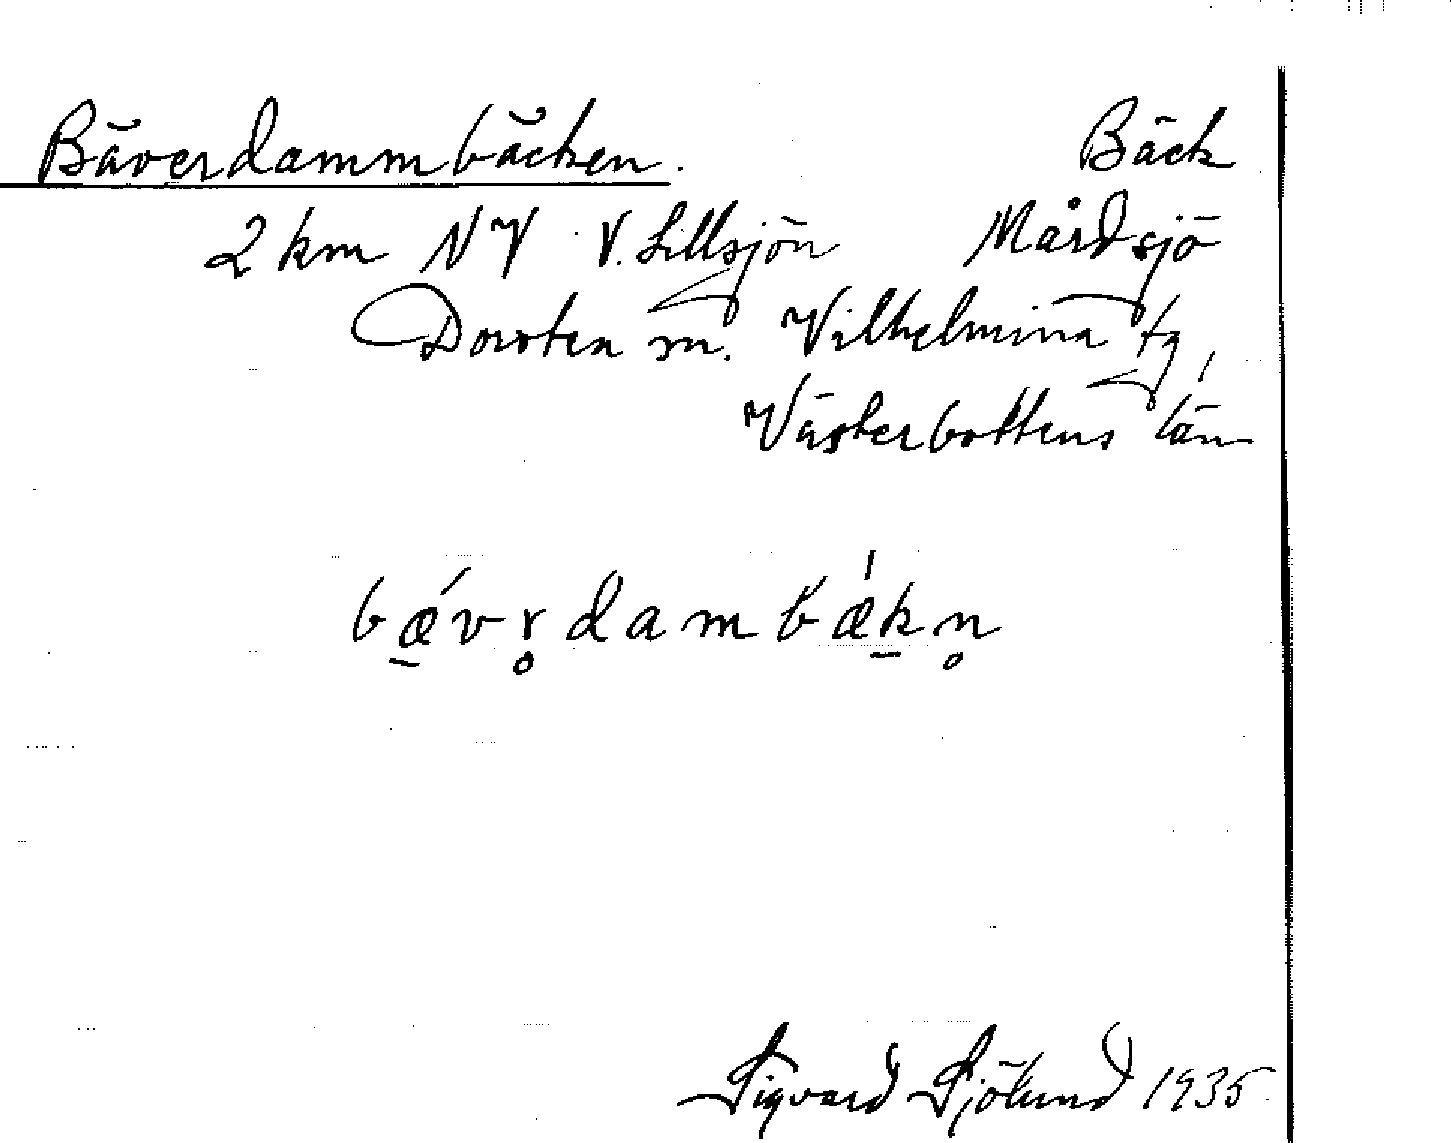 Bäverdammbäcken. Bäck
2 km NV V. Lillsjön Mårdsjö
Dorotea sn. Vilhelmina tg,
Västerbottens län
bǽ̱vr̥dambæ̍ḵn̥
Sigvard Sjölund 1935